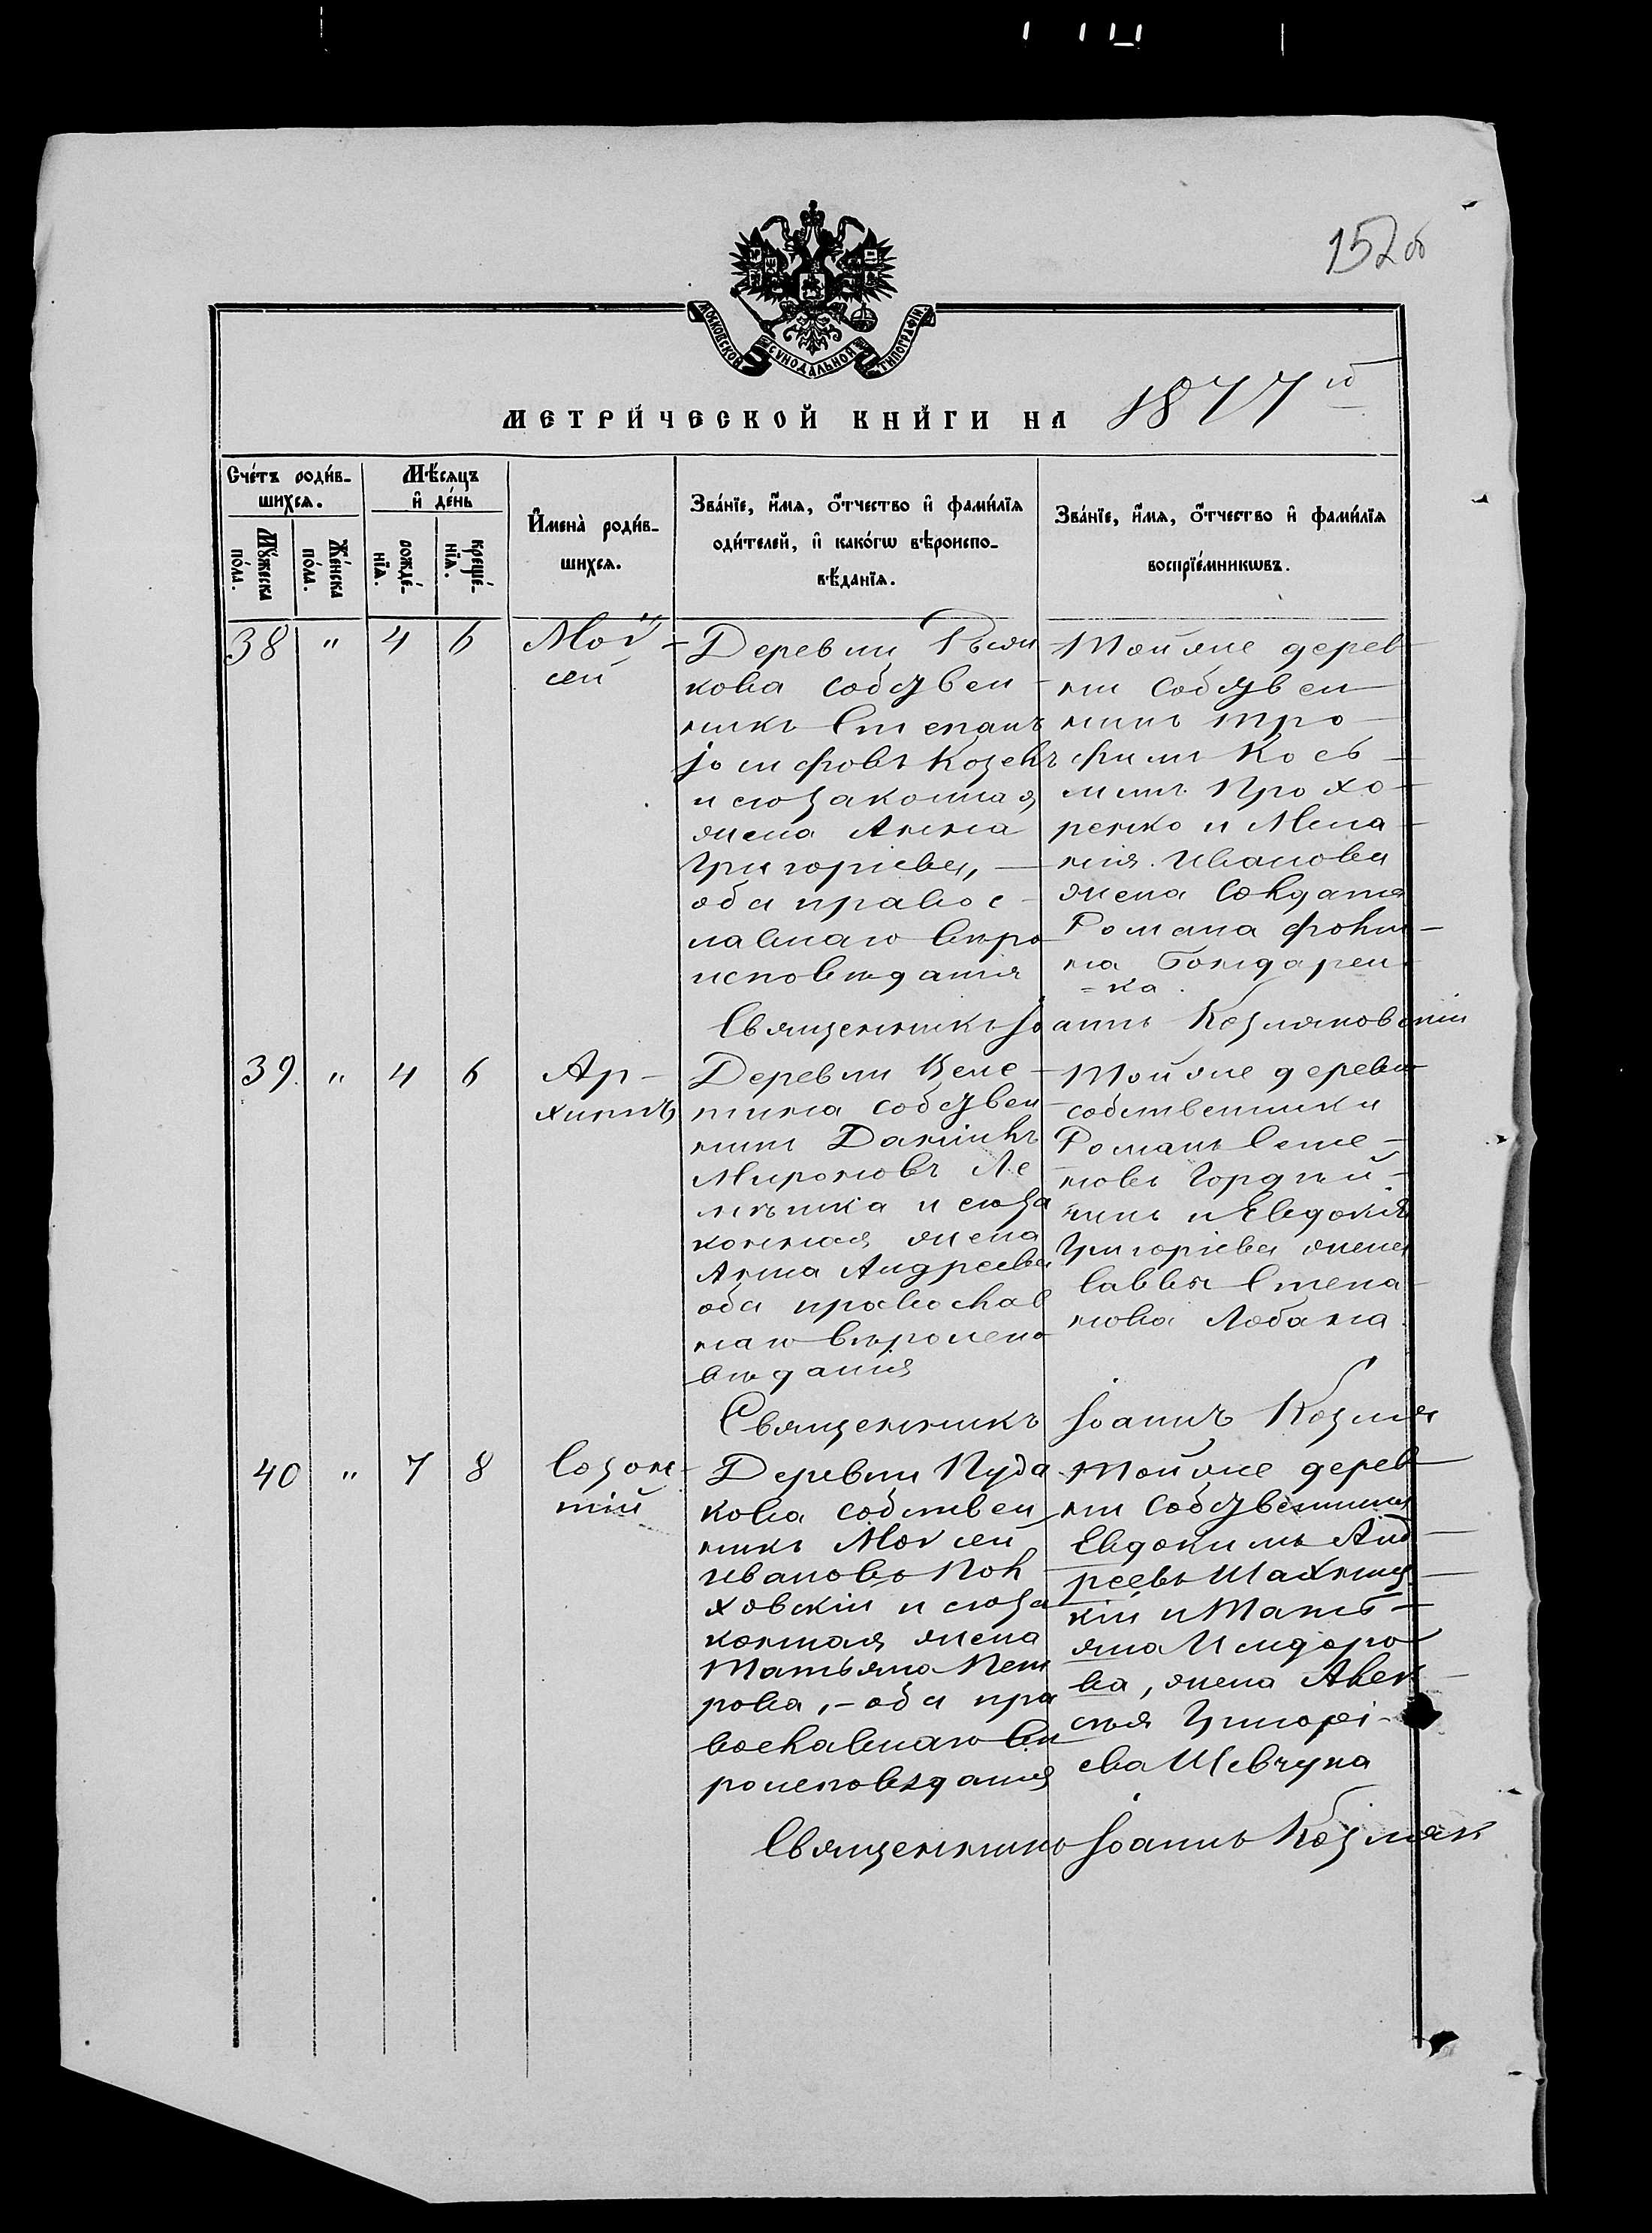 152 об
МОСКОВСКОЙ СѴНОДАЛЬНОЙ ТИПОГРАФІИ
МЕТРИ́ЧЕСКОЙ КНИ́ГИ НА 1877й
Сче́тъ роди́в-
шихсѧ.
Мꙋ́жеска
по́ла.
Же́нска
по́ла.
Мѣ́сѧцъ
и҆ де́нь
рожде́-
нїѧ.
креще́-
нїѧ.
И҆мена̀ роди́в-
шихсѧ.
Зва́нїе, и҆́мѧ, ѻ҆́тчество и҆ фами́лїѧ
оди́телей, и҆ како́гѡ вѣроиспо-
вѣ́данїѧ.
Зва́нїе, и҆́мѧ, ѻ҆́тчество и҆ фами́лїѧ
воспрїе́мникѡвъ.
38 " 4 6
Мой-
сей
Деревни
кова собствен-
никъ Степанъ
Іосифовъ Козелъ
и его законная
жена Анна
Григоріева, —
оба правос-
лавнаго веро
исповѣданія
Той же дерев-
ни собствен-
никъ Тро-
фимъ Кось-
минъ Прохо-
ренко и Мела-
нія Иванова
жена солдата
Романа
на Бондарен-
=ка.
Священникъ Іоаннъ Козмяковскій
39. " 4 6
Ар-
хиппъ
Деревни
собствен-
никъ Даніилъ
Мироновъ Ле-
мешка и его за
конная жена
Анна Андреева
оба православ
наго вѣроиспо
вѣданія
Той же деревни
собственники
Романъ Семе-
новъ Гордѣй-
чикъ и Евдокія
Григоріева жена
Саввы Степа-
нова Лобана.
Священникъ Іоаннъ Козмяк
40 " 7 8
Созон-
тій
Деревни Пуда-
кова собствен
никъ Мойсей
Ивановъ Пол
ховскій и его за
конная жена
Татьяна Пет
рова, – оба пра
вославнаго вѣ
роисповѣданія
Той же дерев-
ни собственники
Евдокимъ Анд-
реевъ Шахниц-
кій и Тать-
яна Исидоро-
ва, жена Алек-
сѣя Григорі-
ева Шевчука
Священникъ Іоаннъ Козмяк